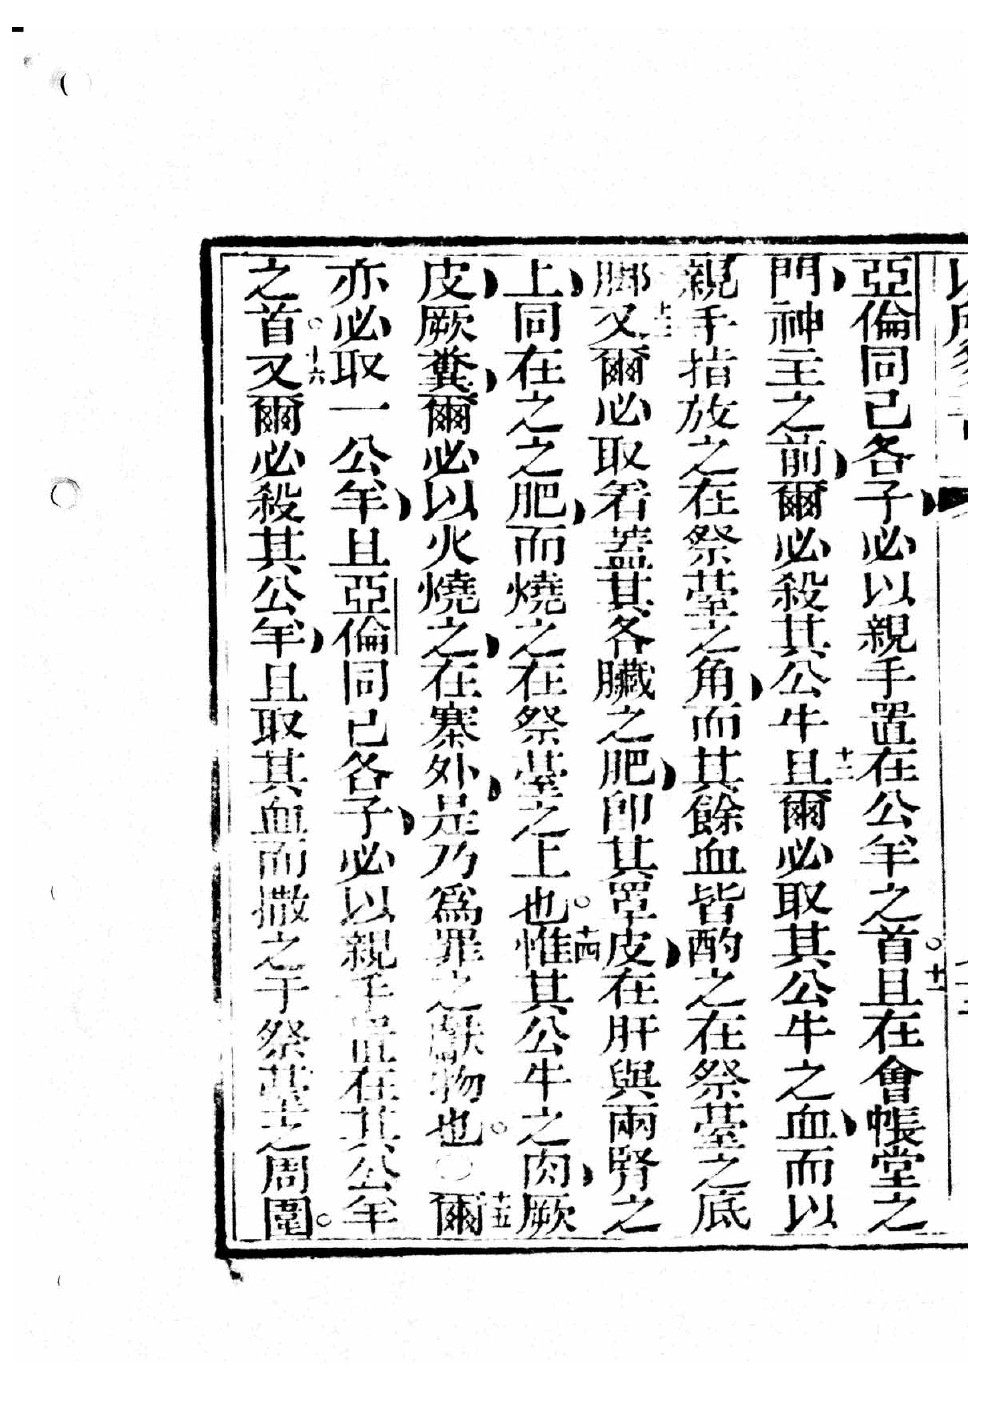 亞倫同己各子必以親手置在公羊之首。十一且在會帳堂之
門神主之前爾必殺其公牛十二且爾必取其公牛之血而以
親手指放之在祭臺之角而其餘血皆酌之在祭臺之底
脚十三又爾必取看蓋其各臟之肥卽其罩皮在肝與兩腎之
上同在之之肥而燒之在祭臺之上也。十四惟其公牛之肉厥
皮厥糞爾必以火燒之在寨外是乃為罪之獻物也。○十五爾
亦必取一公羊且亞倫同己各子必以親手置在其公羊
之首。十六又爾必殺其公羊且取其血而撒之于祭臺之周圍。